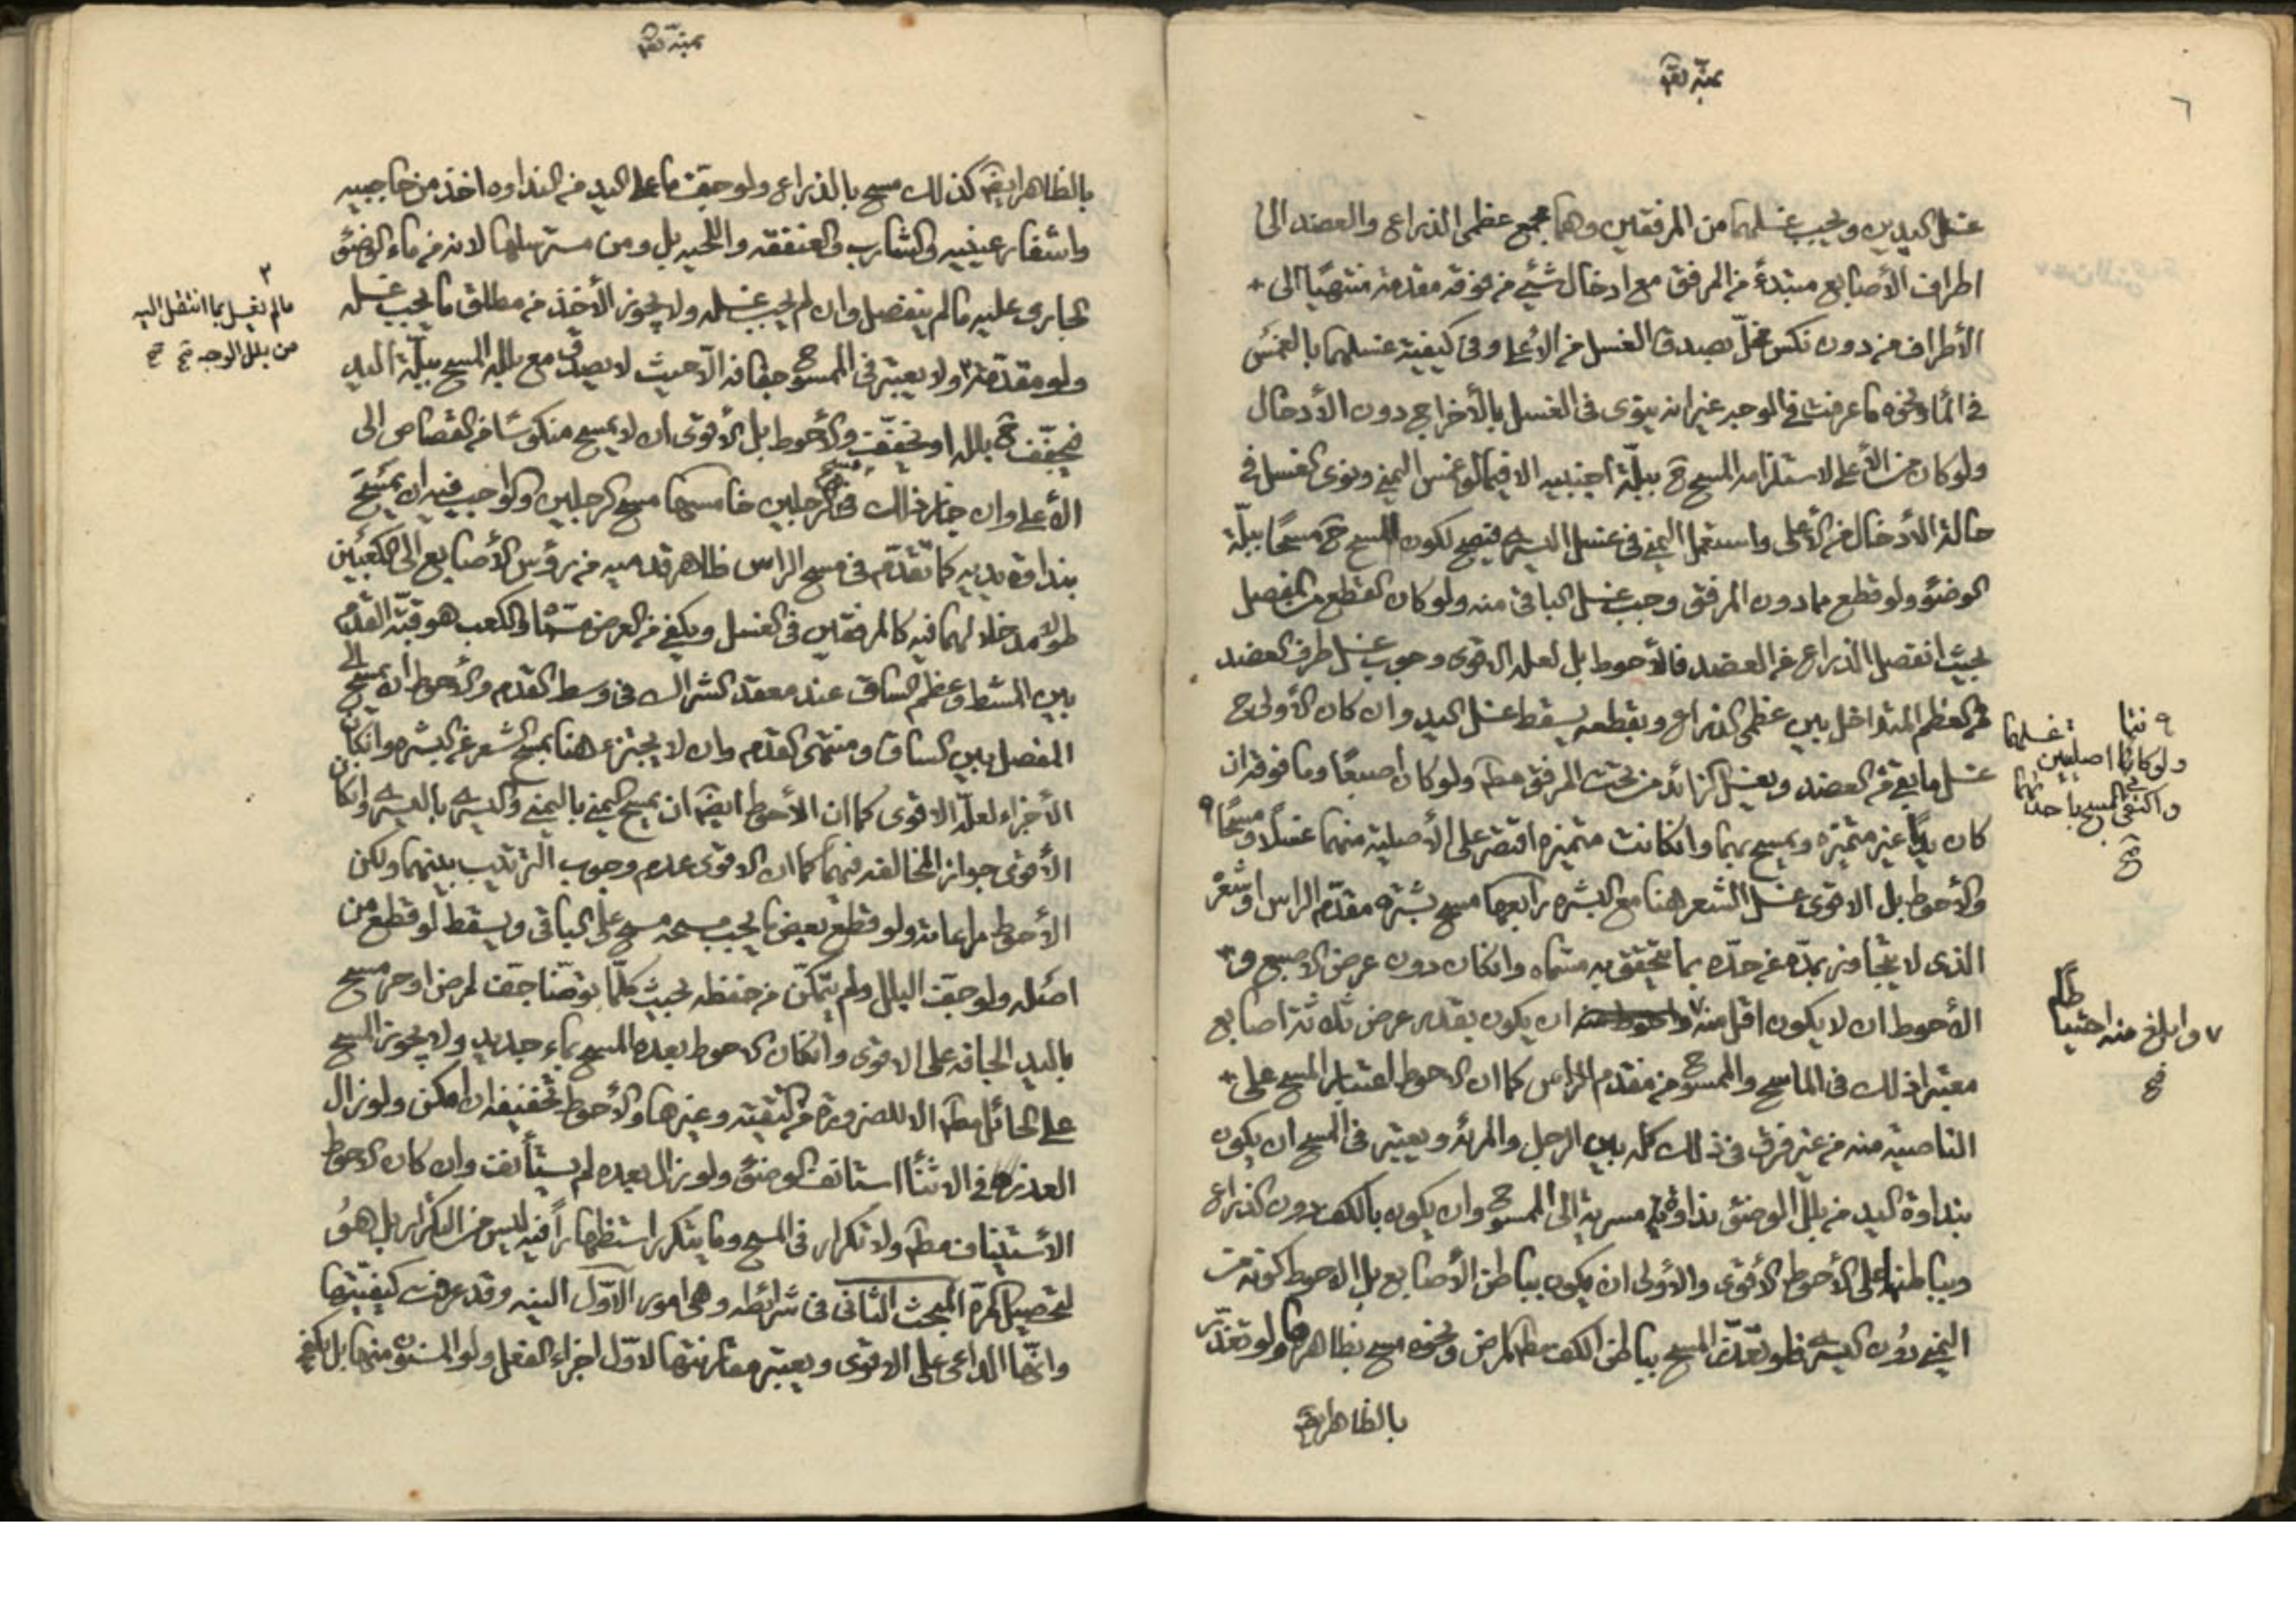 ٦
غسل اليدين ويجب غسلهما من المرفقين وهما مجمع عظمى الذراع والعضد الى
اطراف الأصابع مبتدءً من المرفق مع ادخال شيئ من فوقه مقدمة منتهيًا الى
الأطراف من دون نكس مخلّ بصدق الغسل من الأعلى وفى كيفية غسلهما بالغمس
فى الماء ونحوه ما عرفت فى الوجه غير انه ينوى فى الغسل بالأخراج دون الأدخال
ولو كان من الأعلى لاستلزامه المسح ح ببلّة اجنبيه الا فيما لو غمس اليمنى ونوى الغسل فى
حالة الأدخال من الأعلى واستعمل اليمنى فى غسل اليسرى فيصح لكون المسح ح مسحًا ببلّة
الوضؤ ولو قطع ما دون المرفق وجب غسل الباقى منه ولو كان القطع من المفصل
بحيث انفصل الذراع عن العضد فالأحوط بل لعله الاقوى وجوب غسل طرف العضد
من العظم المتداخل بين عظمى الذراع وبقطعه يسقط غسل اليد وان كان الأولى ح
غسل ما بقى من العضد ويغسل الزائد من تحت المرفق مطـ ولو كان اصبعًا وما فوقه ان
كان يدًا غير متميزه ويمسح بهما وانكانت متميزه اقتصر على الأصلية منهما غسلًا ومسحًا ٩
والأحوط بل الاقوى غسل الشعر هنا مع البشره رابعها مسح بشرة مقدّم الراس او شعره
الذى لا يتجاوز بمدّه عن حدّه بما يتحقق به مسّماه وانكان دون عرض الاصبع و
الأحوط ان لا يكون اقل منه ٧ ان يكون بقدر عرض ثلثة اصابع
معتبرا ذلك فى الماسح والممسوح من مقدم الراس كما ان الاحوط اعتبار المسح على
الناصية منه من غير فرق فى ذلك كله بين الرجل والمرئه ويعتبر فى المسح ان يكون
بنداوة اليد من بلل الوضئ نداوة مسرية الى الممسوح وان يكون بالكف دون الذراع
وبباطنها على الأحوط الأقوى والأولى ان يكون بباطن الأصابع بل الاحوط كونه من
اليمنى دون اليسرى فلو تعذّر المسح بباطن الكف مطـ لمرض ونحوه مسح بظاهرها ولو تعذّر
بالظاهر ايضـ
٩ ولو كانتا اصليتين غسلهما
واكتفى فى المسح باحدهما
صح
٧ وابلغ منه احتياطا
صح
بالظاهر ايضـ كذلك مسح بالذراع ولو جفت ما على اليد من النداوه اخذ من حاجبيه
واشفار عينيه والشارب والعنفقه واللحيه بل ومن مسترسلها لانه من ماء الوضئ
الجارى عليه ما لم ينفصل وان لم يجب غسله ولا يجوز الأخذ من مطلق ما يجب غسله
ولو مقدّمة ٣ ولا يعتبر فى الممسوح جفافه الّا حيث لا يصدق مع بلله المسح ببلّة اليد
فيجفّف ح بلله او يخفّف والأحوط بل الأقوى ان لا يمسح منكوسًا من القصاص الى
الأعلى وان جاز ذلك فى مسح الرجلين خامسها مسح الرجلين والواجب فيه ان يمسح
بنداوة يديه كما تقدّم فى مسح الراس ظاهر قدميه من رؤس الأصابع الى الكعبين
طولًا مدخلا لهما فيه كالمرفقين فى الغسل ويكفى من العرض مسّماه والكعب هو قبّة القدم
بين المشط وعظم الساق عند معقد الشراك فى وسط القدم والأحوط ان يمسح الى
المفصل بين الساق ومنتهى القدم وان لا يجتزى هنا بمسح الشعر عن البشره وان كان
الأجزاء لعلّه الاقوى كما ان الأحوط ايضـ ان يمسح اليمنى باليمنى واليسرى باليسرى وان كان
الأقوى جواز المخالفه فيهما كما ان الاقوى عدم وجوب الترتيب بينهما ولكن
الأحوط مراعاته ولو قطع بعض ما يجب مسحه مسح على الباقى ويسقط لو قطع من
اصله ولو جفت البلل ولم يتمكّن من حفظه بحيث كلّما توضّا جفت لمرض او حر مسح
باليد الجافه على الاقوى وانكان الاحوط بعده المسح بماء جديد ولا يجوز المسح
على الحائل مطـ الا للضرورة من التقيّه وغيرها والأحوط تخفيفه ان امكن ولو زال
العذر فى الاثنأ استانف الوضئ ولو زال بعده لم يستأنف وان كان الاحوط
الأستيناف مطـ ولا تكرار فى المسح وما يتكرر استظهارًا فيه ليس من التكرار بل هو
لتحصيل المرة المبحث الثانى فى شرائطه وهى امور الاوّل النيه وقد عرفت كيفيّتها
وانّها الداعى على الاقوى ويعتبر مقارنتها لاوّل اجزاء الفعل ولو المسنون منها بل يكفى
٣
ما لم يغسل بما انتقل اليه
من بلل الوجه صح صح